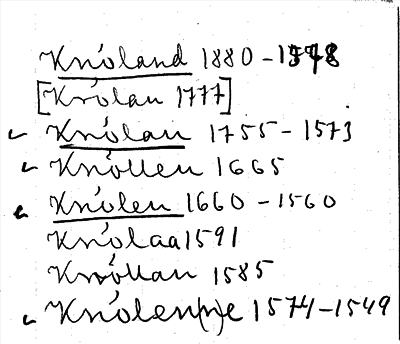 Knóland 1880-1578
[Król​an 1777]
Knólan 1755-1573
Knóllen 1665
Knólen 1660-1560
Knólaa 1591
Knóllan 1585
Knólen(n)e 1574-1549